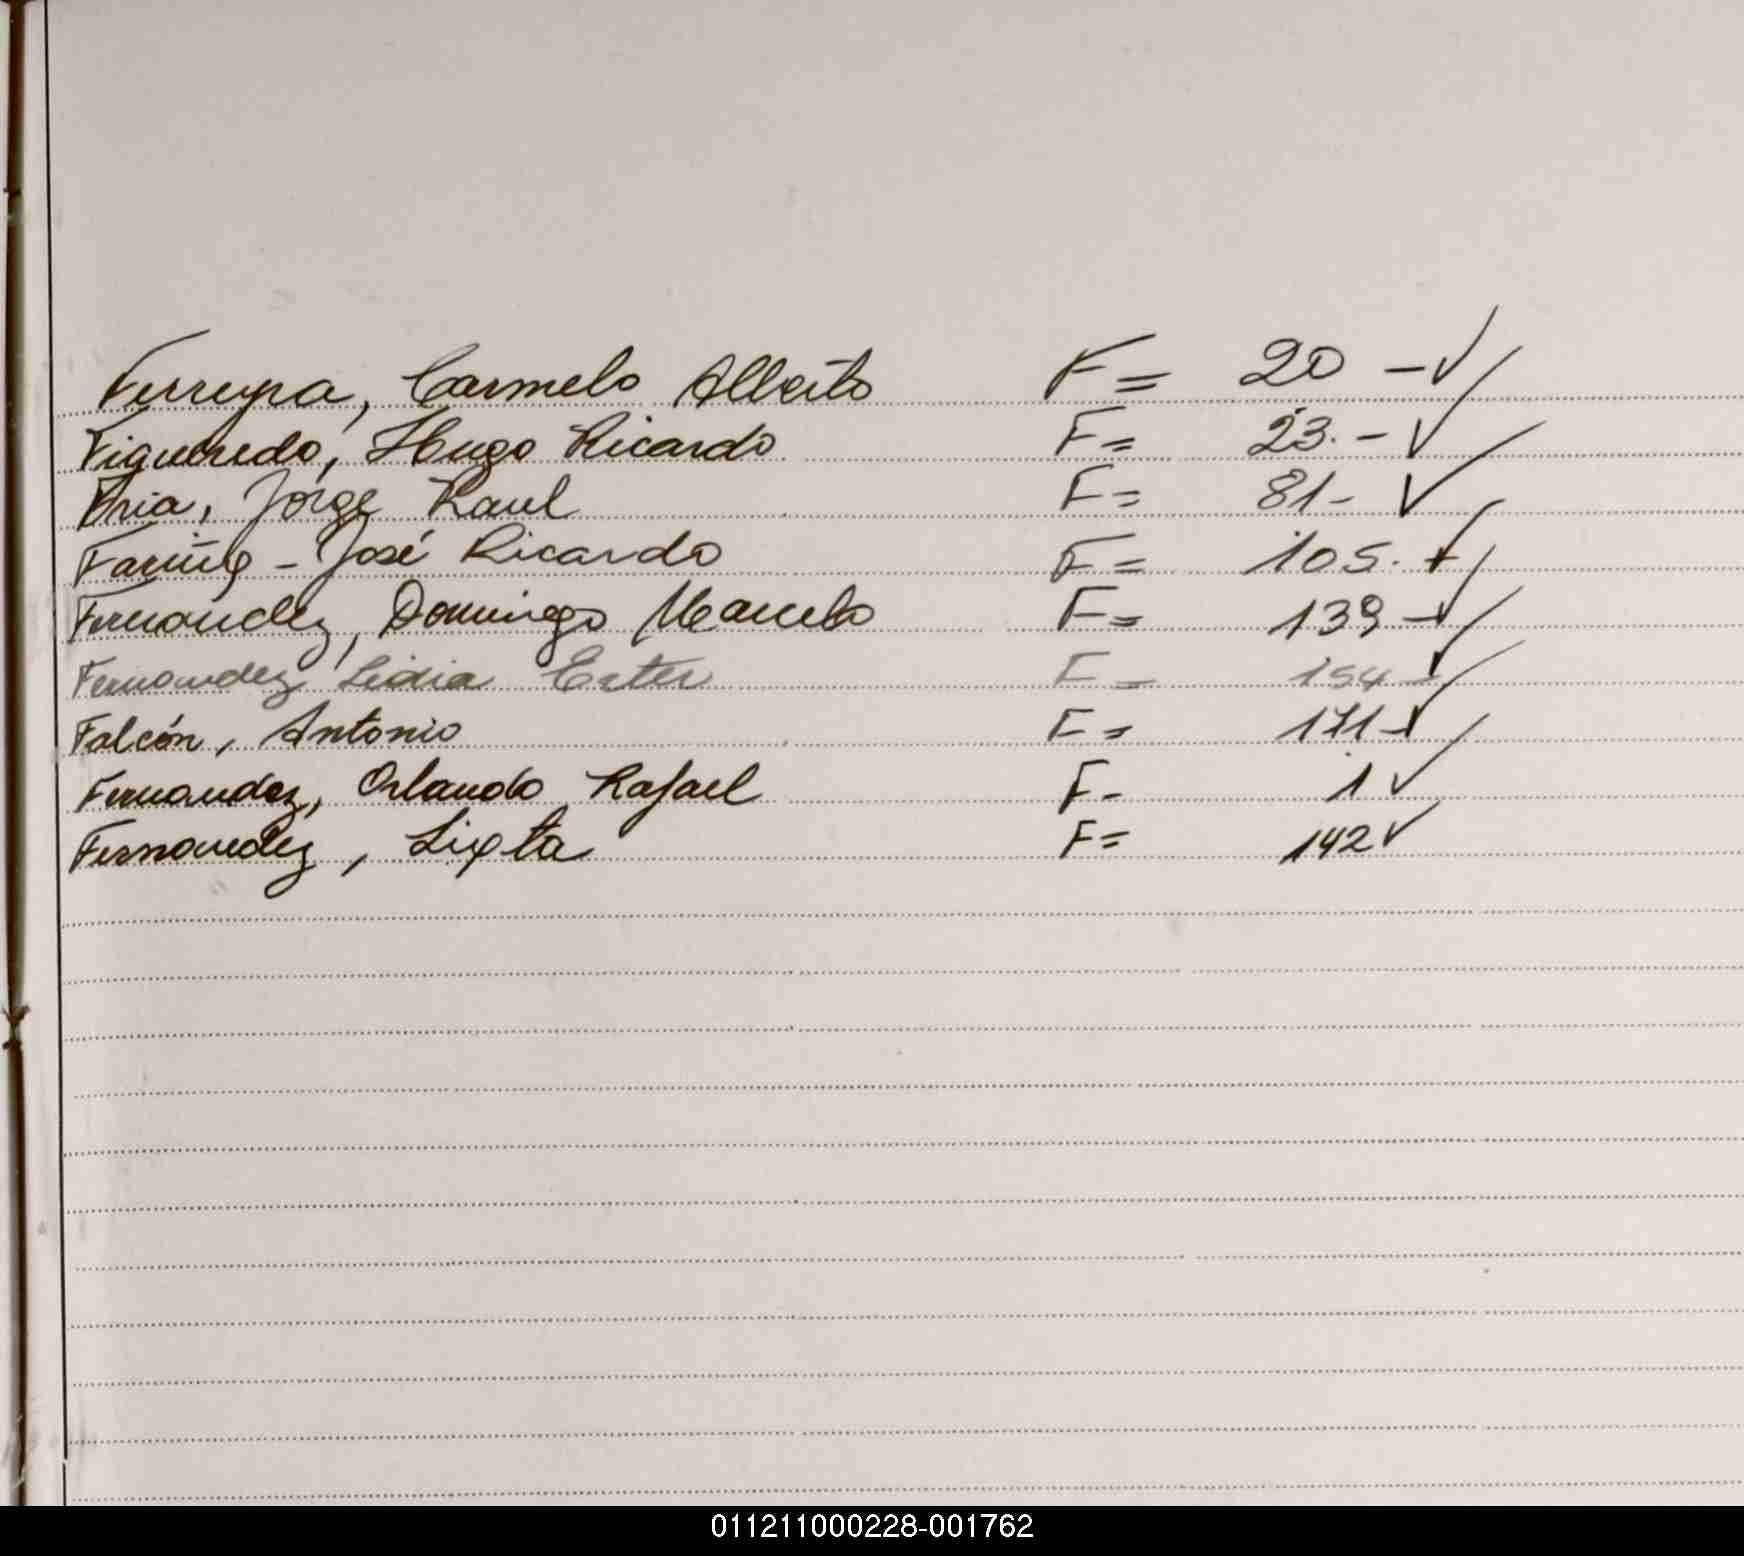 Ferreyra, Carmelo Alberto F= 20 -✓
Figueredo, Hugo Ricardo F= 23.-✓
Fria, Jorge Raul F= 81- ✓
Fariña - José Ricardo F= 105.-✓
Fernandez, Domingo Marcelo F= 139-✓
Fernandez Lidia Ester F= 154-✓
Falcón, Antonio F= 171-✓
Fernandez, Orlando Rafael F- 1✓
Fernandez, Sixta F= 142✓
011211000228-001762